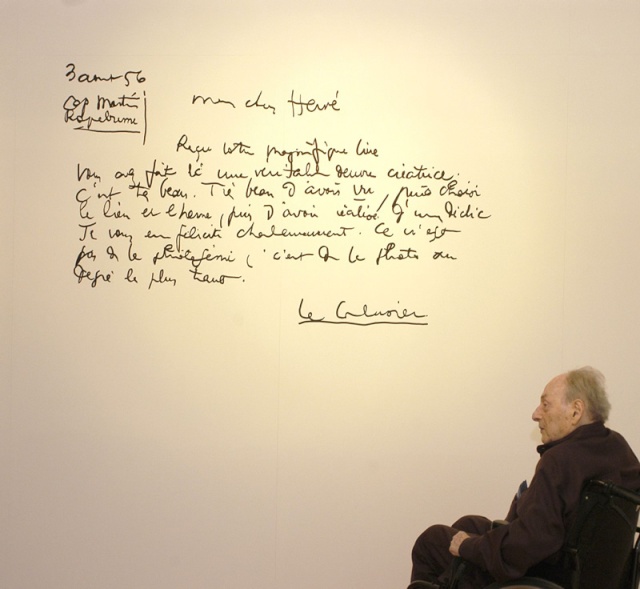 3 aout 56
Cap Martin
Roquebrune
mon cher Hervé
Reçu votre magnifique livre
Vous avez fait là une véritable oeuvre créatrice.
C'est très beau. Très beau d'avoir vu, puis choisi
le lieu et l'heure, puis d'avoir réalisé d'un déclic
Je vous en félicite chaleureusement. Ce n'est
pas de la c'est de la photo au
degré le plus haut.
Le Corbusier